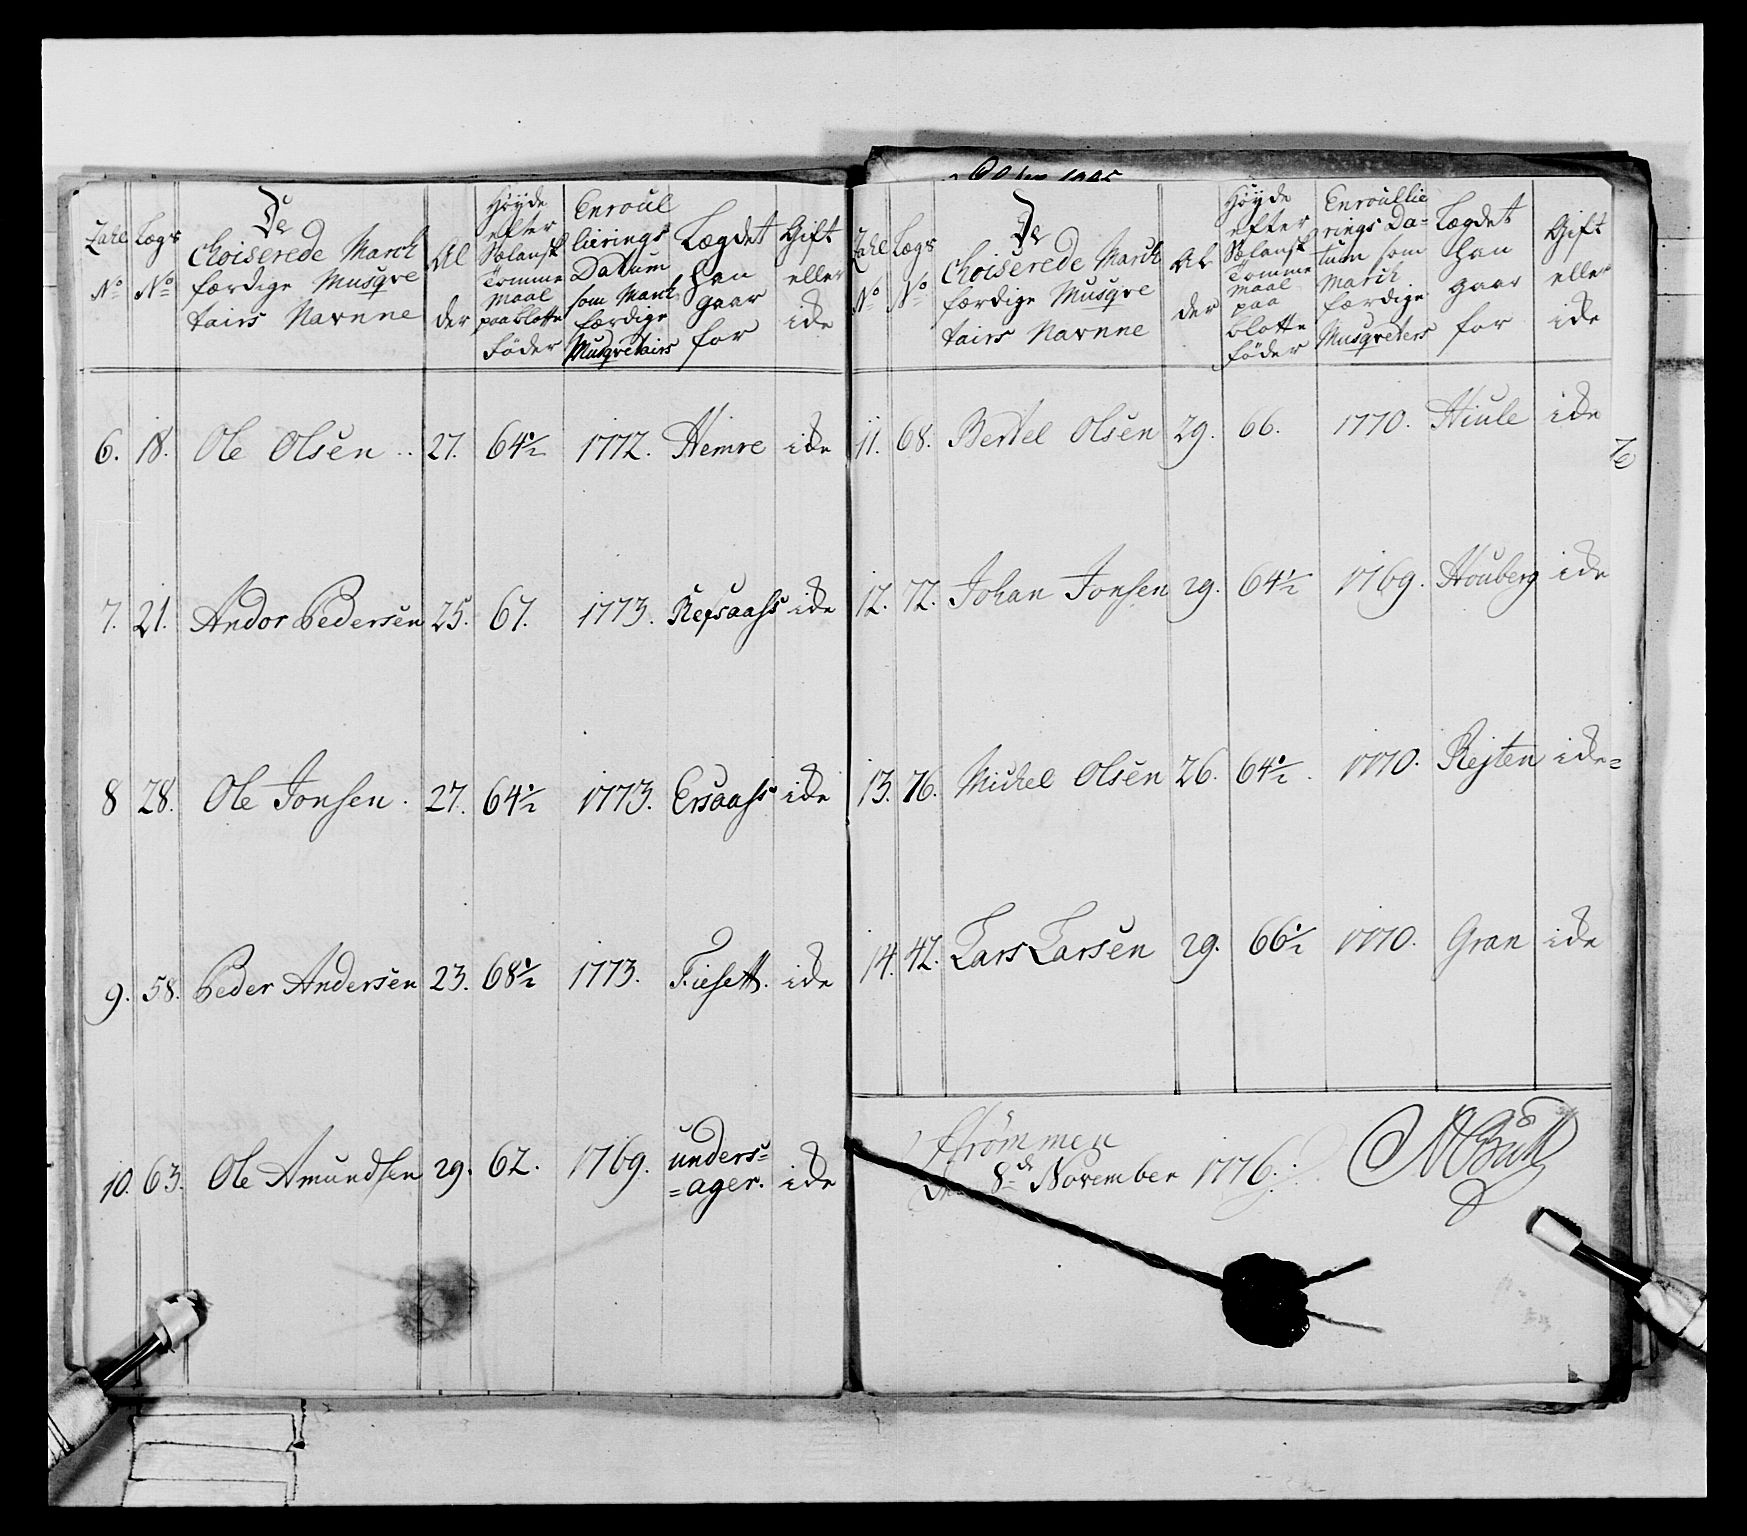 Zahl No | Lægs No | De Choiserede March færdige Musqve tairs Navnne | Al der | Höyde efter Sælansk Tomme maal paa blotte Föder | Enroul lierings Datum som March færdige Musqvetairs | Lægdet han gaar for | Gift eller ide
6. 18. Ole Olsen .. 27. 64½ 1772. Hemre ide
7. 21. Andor Pedersen 25. 67. 1773. Refsaahs ide
8 28. Ole Jonsen . 27. 64½ 1773. Ersaahs ide
9. 58. Peder Andersen 23. 68½ 1773. Fiesett. ide
10. 63. Ole Amundsen 29. 62. 1769. unders=
=ager. ide
Zahl No | Lægs No | De Choiserede March færdige Musqve tairs Navnne | Al der | Höyde efter Sælansk Tomme maal paa blotte Föder | Enroullie rings Da= tum som March færdige Musqveters | Lægdet han gaar for | Gift eller ide
11. 68. Bertel Olsen 29. 66. 1770. Hiule ide
12. 72. Johan Jonsen 29. 64½ 1769. Houberg ide
13. 76. Michel Olsen 26. 64½ . 1770. Rejten ide=
14. 42. Lars Larsen 29. 66½ 1770. Gran ide
Strömmen
8de November 1776.